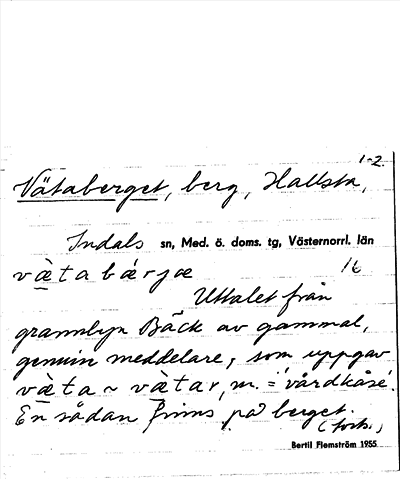 1-2.
Vätaberget, berg, Hallsta,
Indals sn, Med. ö. doms. tg, Västernorrl. län
vætabærjæ 16
Uttalet från
grannbyn Bäck av gammal,
genuin meddelare, som uppgav
væta ~ vætar, m. = 'vårdkase'.
En sådan finns på berget.
(forts.)
Bertil Flemström 1955